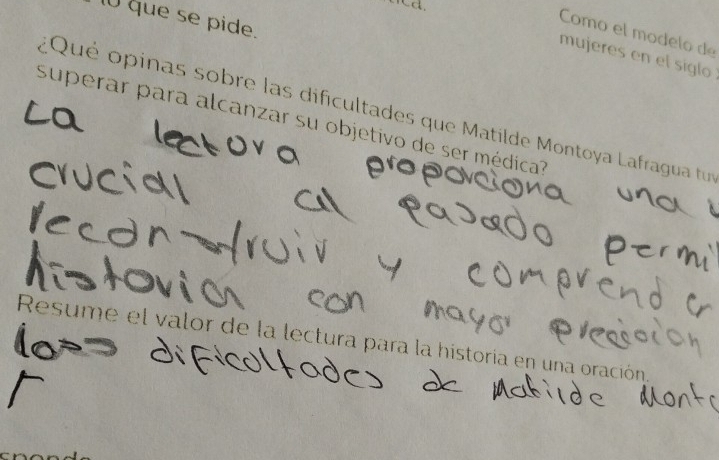 que se pide.
Como el modelo de
mujeres en el siglo
¿Qué opinas sobre las dificultades que Matilde Montoya Lafragua tuv
superar para alcanzar su objetivo de ser médica?
La lectora proporciona una
crucial al pasado permi
reconstruir y comprender
historia con mayor precision
Resume el valor de la lectura para la historia en una oración.
dificoltades de Matilde Monto